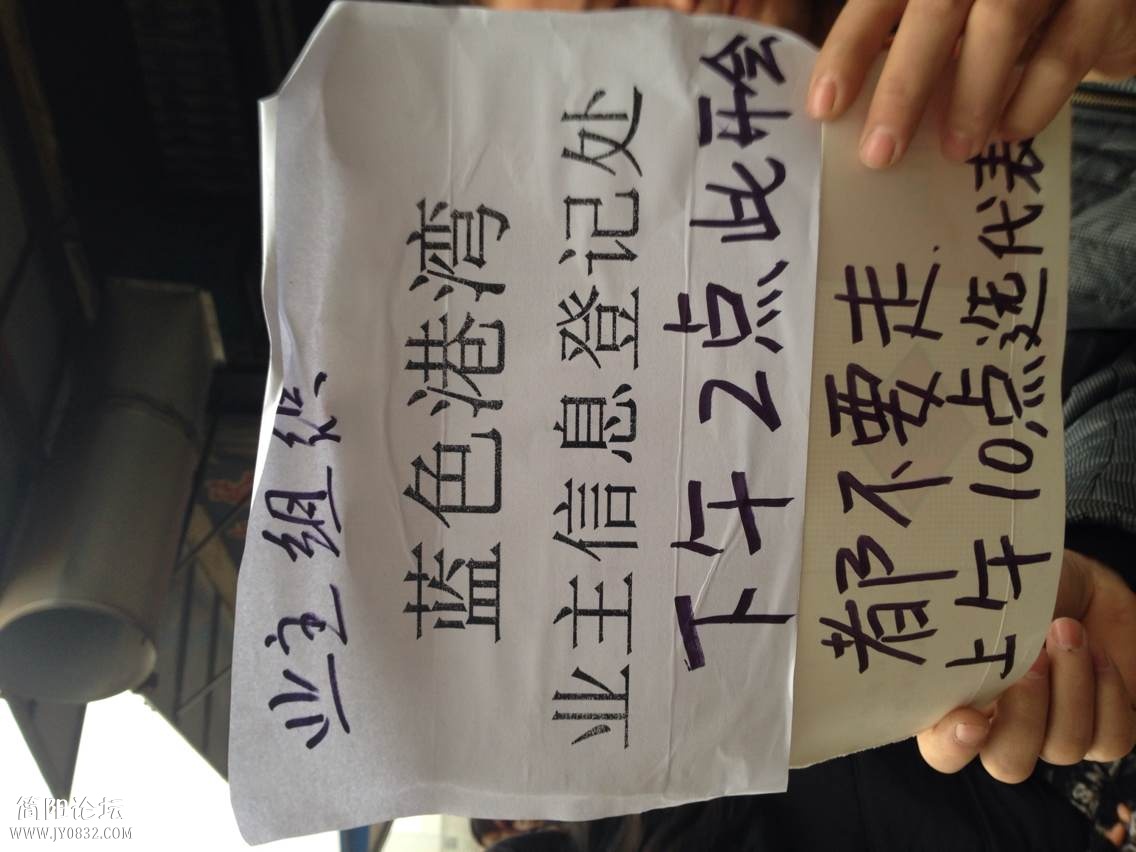 业主组织
蓝色港湾
业主信息登记处
下午2点此开会
都不要走
上午10点选代表
简阳论坛
WWW.JY0832.COM